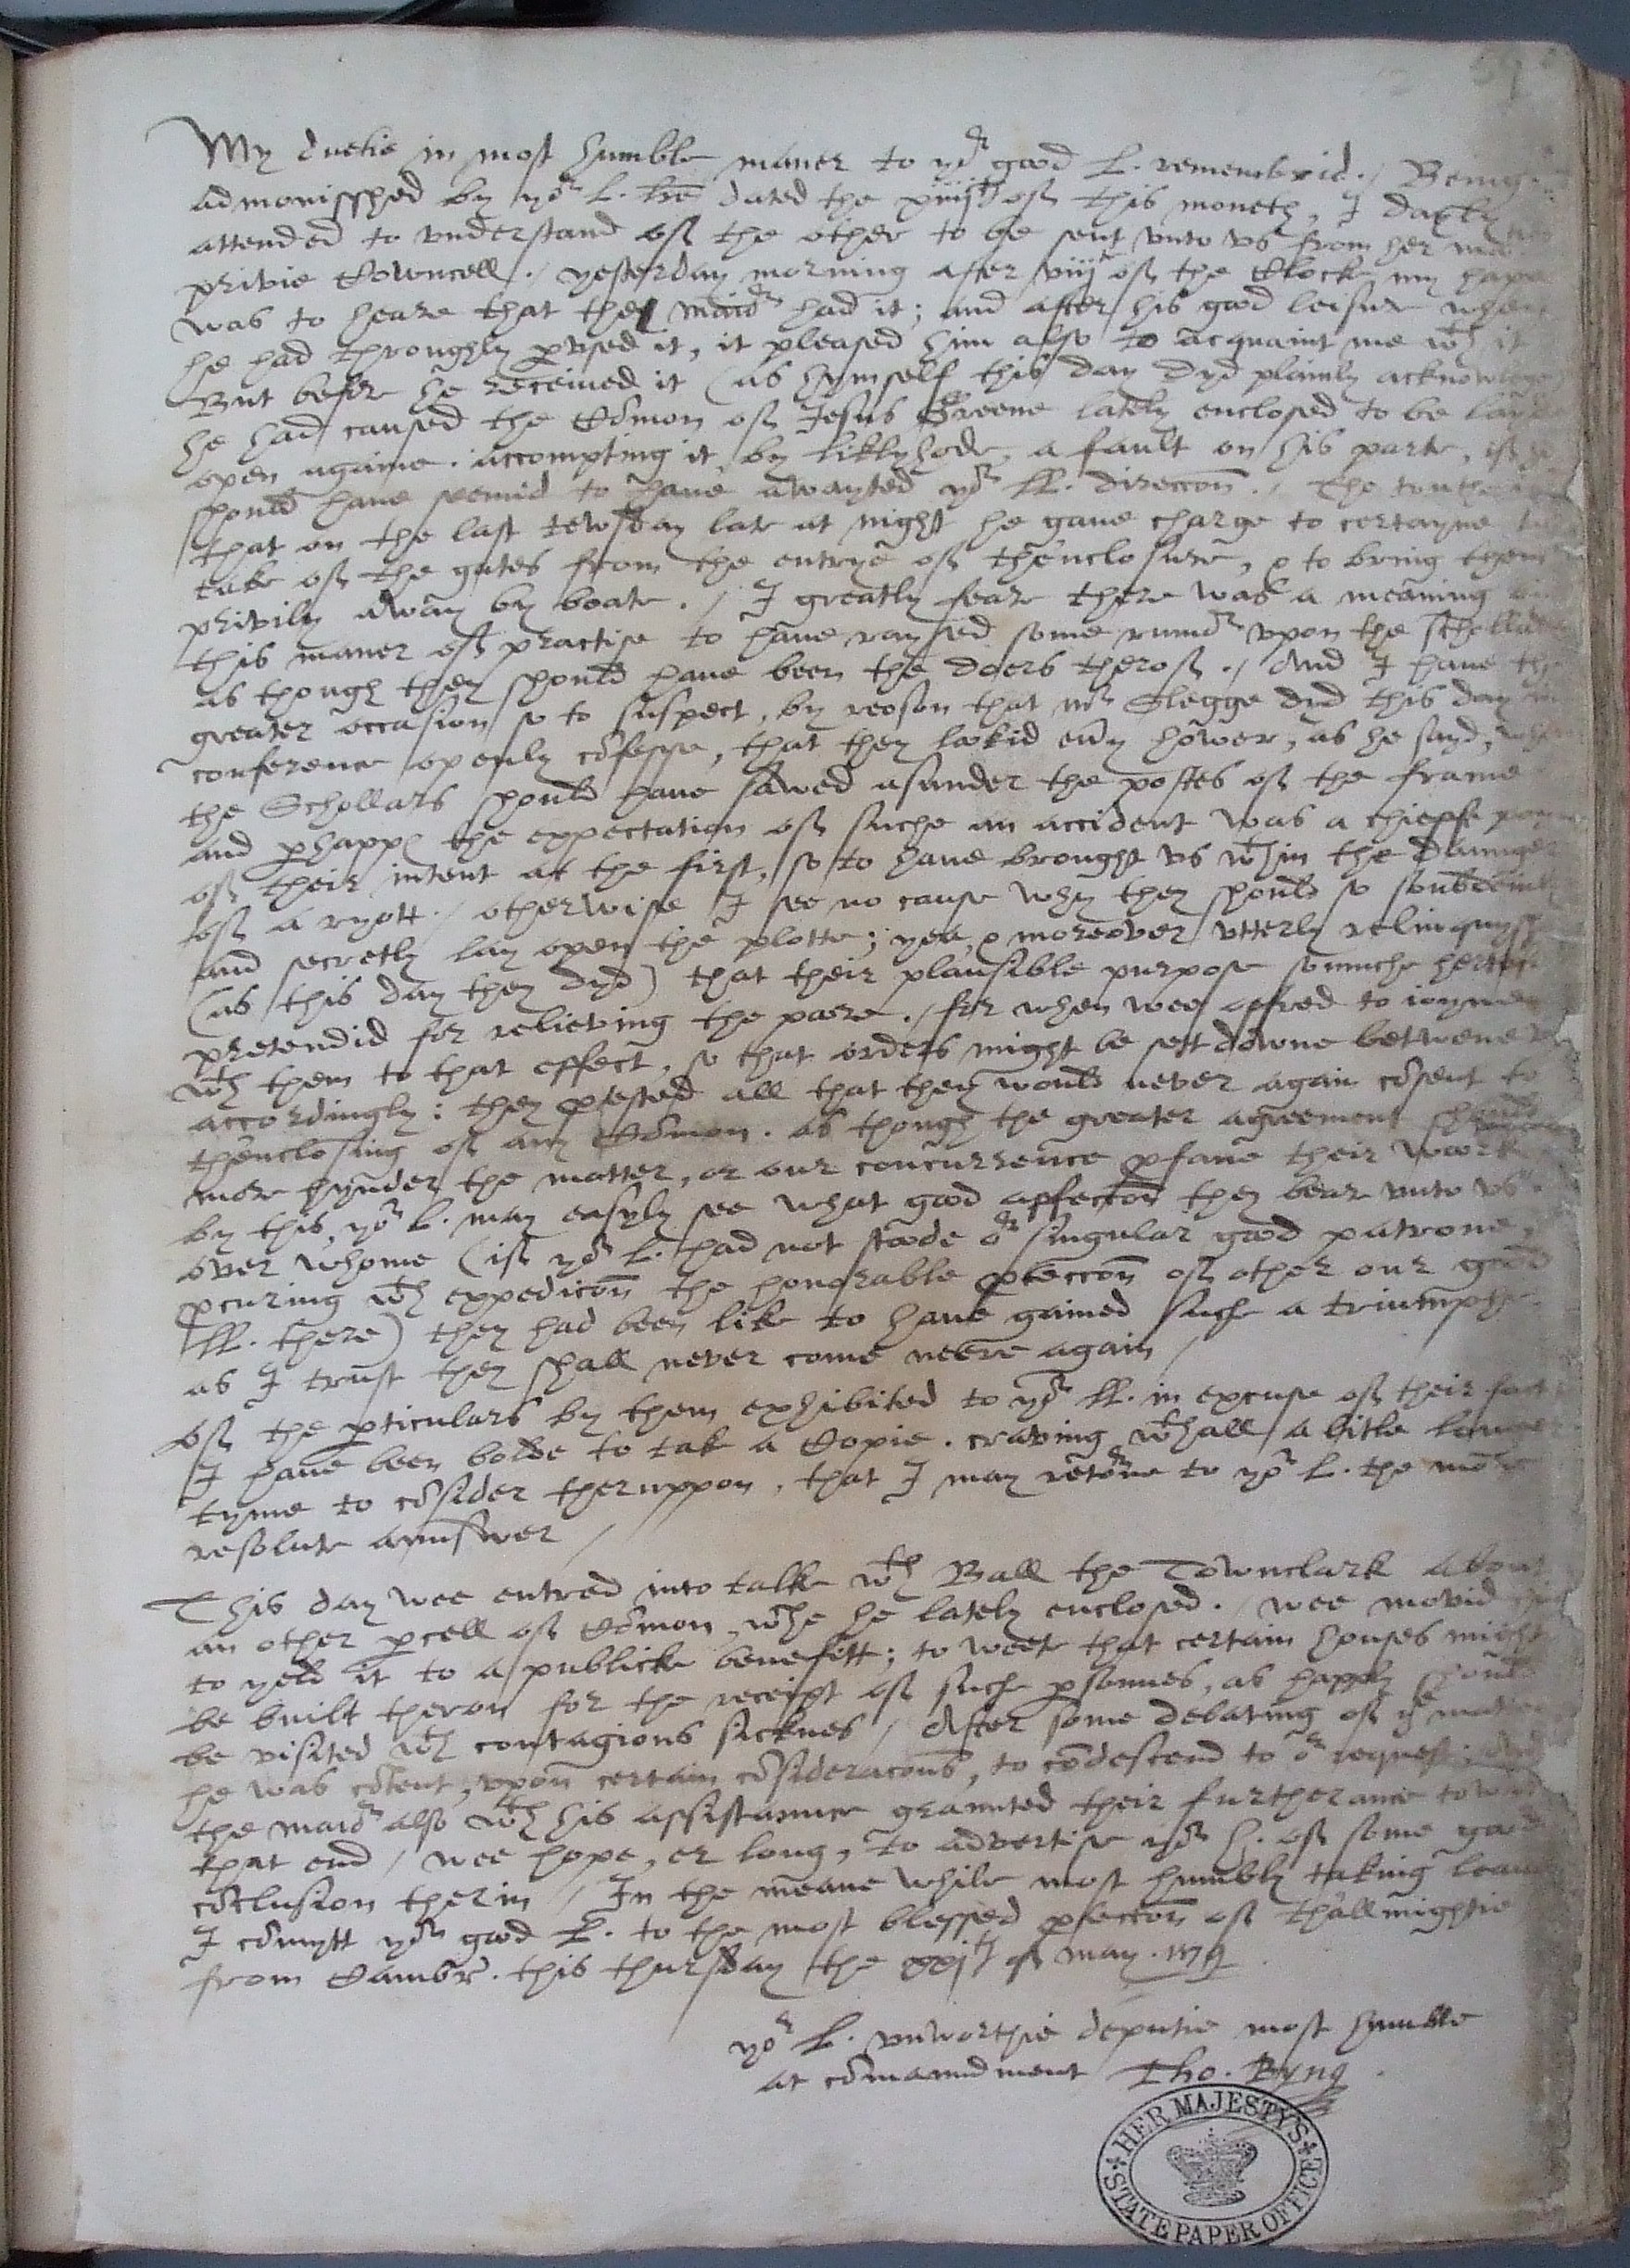 My duetie in most humble maner to yor good L. remembrid./ Being
admonisshed by yor L. lre dated the xiiijth of this moneth, I dayly
attended to vnderstand of the other to be sent vnto vs from her
privie Cowncell./ yesterday morning after viij of the Clock my happ
was to heare that the maior had it; and after his good leisure when
he had throughly pvsed it, it pleased him also to acquaint me wth it
But before he received it (as hymself this day dyd plainly acknowlege)
he had caused the Comon of Jesus Greene lately enclosed to be layd
open againe. accompting it by liklyhode, a fault on his parte, if he
should haue semid to haue awayted yor LL. direccon./ The truthe is
that on the last tewsday late at night he gaue charge to certayne to
take of the gates from the entrye of thenclosure, & to bring them
privily away by boate./ I greatly feare there was a meaning
this maner of practise to haue raysed some rumor vpon the schollars
as though they should haue been the doers therof./ And I haue the
greater occasion so to suspect, by reason that mr Slegge dyd this day
conference openly cofesse, that they lookid eury hower, as he sayd, when
the Schollars should haue sawed asunder the postes of the frame
and phapps the expectation of suche an accident was a chieffe
of their intent at the first, so to haue brought vs wthin the daunger
of a ryott./ otherwise I see no cause why they should so soubdeinly
and secretly lay open the plotte; yea, & moreover vtterly relinquyshe
(as this day they dyd) that their plausible purpose somuche hertofore
pretendid for relieving the poore./ for when wee offred to ioyne
wth them to that effect, so that orders might be sett downe betwene vs
accordingly: they ptested all that they would never again cosent to
thenclosing of any Comon. as though the greater agreement should
more hynder the matter, or our concurrence pfane their work
by this yor L. may easyly see what good affeccon they bear vnto vs.
over whome (if yor L. had not stoode or singular good patrone,
pcuring wth expedicon the honorable pteccon of other our good
LL. there) they had been like to haue gained such a triumphe
as I trust they shall never come neere again/
Of the pticulars by them exhibited to yor LL. in excuse of their fact
I haue been bolde to tak a Copie. craving wthall a litle longer
tyme to cosider theruppon, that I may retorne to yor L. the more
resolute aunswer/
This day wee entred into talke wth Ball the Townclark about
an other pcell of Comon, wche he lately enclosed./ wee movid him
to yeld it to a publick benefitt; to weet that certain houses might
be built theron for the receipt of such psonnes, as happly should
be visited wth contagious sicknes/ After some debating of ye matter
he was cotent, vpon certain cosideracons, to codescend to or request: And
the maior also wth his assistaunce graunted their furtherance toward
that end/ wee hope, er long, to advertise yor h. of some good
coclusion therin/ In the meane while most humbly taking leaue
I comytt yor good L. to the most blessed pteccon of thallmightie
from Cambr. this thursday the xxjth of may. 1579
yor L. vnworthie deputie most humble
at comaundment Tho. Byng
HER MAJESTY'S STATE PAPER OFFICE